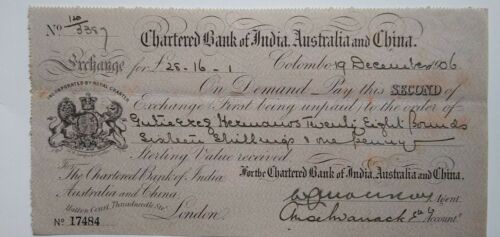 No 120/3387
Chartered Bank of India, Australia and China.
Exchange for £28-16-1 Colombo 19 December 06
INCORPORATED BY ROYAL CHARTER
On Demand Pay this SECOND of
Exchange (First being unpaid) to the order of
Gutierrez Hermanos Twenty Eight Pounds
Sixteen Shillings & one penny
Sterling Value received
To The Chartered Bank of India
Australia and China,
Hatton Court, Threadneedle Str.
London.
For the Chartered Bank of India, Australia and China.
Agent.
Account.
No 17484